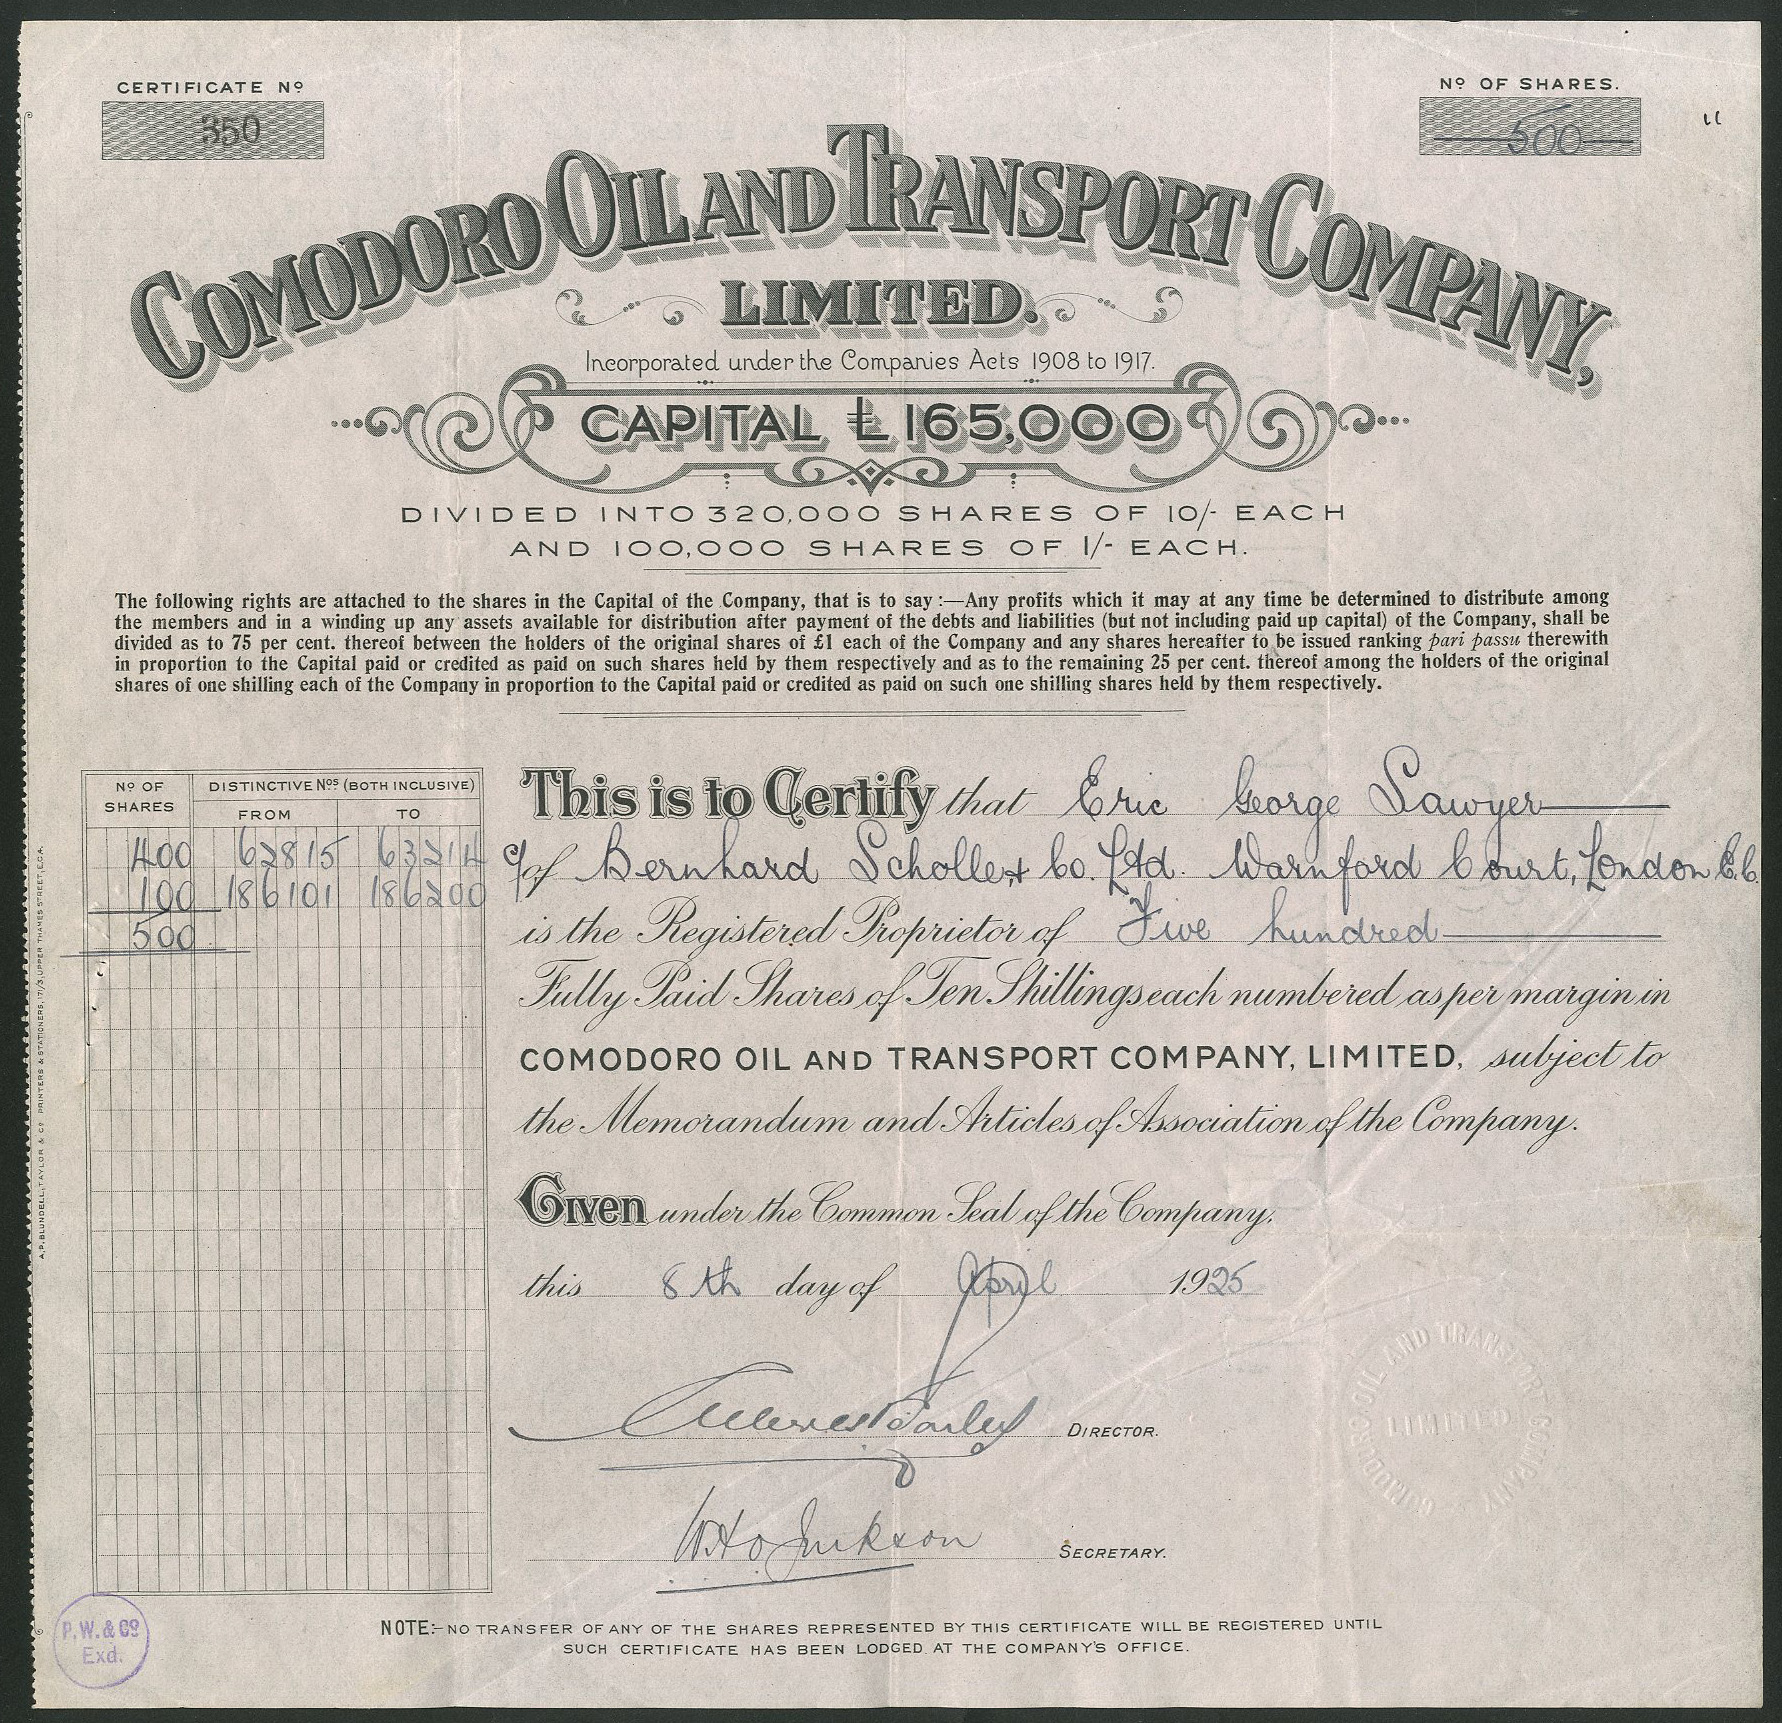 CERTIFICATE Nº
350
Nº OF SHARES.
500
COMODORO OIL AND TRANSPORT COMPANY,
LIMITED.
Incorporated under the Companies Acts 1908 to 1917.
CAPITAL £165,000
DIVIDED INTO 320,000 SHARES OF 10/- EACH
AND 100,000 SHARES OF 1/- EACH.
The following rights are attached to the shares in the Capital of the Company, that is to say:—Any profits which it may at any time be determined to distribute among
the members and in a winding up any assets available for distribution after payment of the debts and liabilities (but not including paid up capital) of the Company, shall be
divided as to 75 per cent. thereof between the holders of the original shares of £1 each of the Company and any shares hereafter to be issued ranking pari passu therewith
in proportion to the Capital paid or credited as paid on such shares held by them respectively and as to the remaining 25 per cent. thereof among the holders of the original
shares of one shilling each of the Company in proportion to the Capital paid or credited as paid on such one shilling shares held by them respectively.
Nº OF SHARES DISTINCTIVE Nos (BOTH INCLUSIVE)
FROM TO
400 62815 63214
100 186101 186200
500
This is to Certify that Eric George Sawyer
c/o of Bernhard Scholle & Co. Ltd. Warnford Court, London E.C.
is the Registered Proprietor of Five hundred
Fully Paid Shares of Ten Shillings each numbered as per margin in
COMODORO OIL AND TRANSPORT COMPANY, LIMITED, subject to
the Memorandum and Articles of Association of the Company.
Given under the Common Seal of the Company.
this 8th day of April 1925
DIRECTOR.
SECRETARY.
COMODORO OIL AND TRANSPORT COMPANY
LIMITED
NOTE:—NO TRANSFER OF ANY OF THE SHARES REPRESENTED BY THIS CERTIFICATE WILL BE REGISTERED UNTIL
SUCH CERTIFICATE HAS BEEN LODGED AT THE COMPANY'S OFFICE.
P.W. & Co
Exd.
A.P. BLUNDELL, TAYLOR & Co PRINTERS & STATIONERS, 171/3, UPPER THAMES STREET, E.C.4.